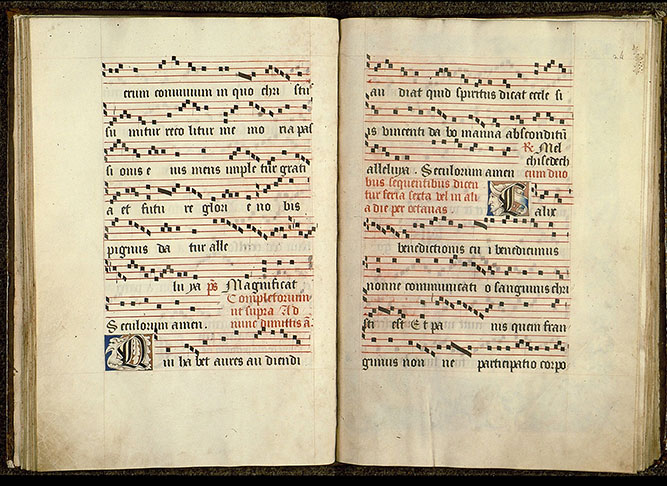 crum conuiuium in quo chri stus
su mitur reco litur me mo ria pas
si onis e ius mens imple tur grati
a et futu re glori e no bis
pignus da tur alle
lu ya p̄s Magnificat
Completorium
ut supra Ad
Seculorum amen. nunc dimittis a̅.
Qui ha bet aures au diendi
au diat quid spiritus dicat eccle si
is vincenti da bo manna absconditū
℟. Mel
chisedech
alleluya . Seculorum amen cum duo
bus sequentibus dicen
tur feria sexta vel in ali
a die per octauas Calix
benedictionis cu i benedicimus
nonne communicati o sanguinis chri
sti est Et pa nis quem fran
gimus non ne participatio corpo